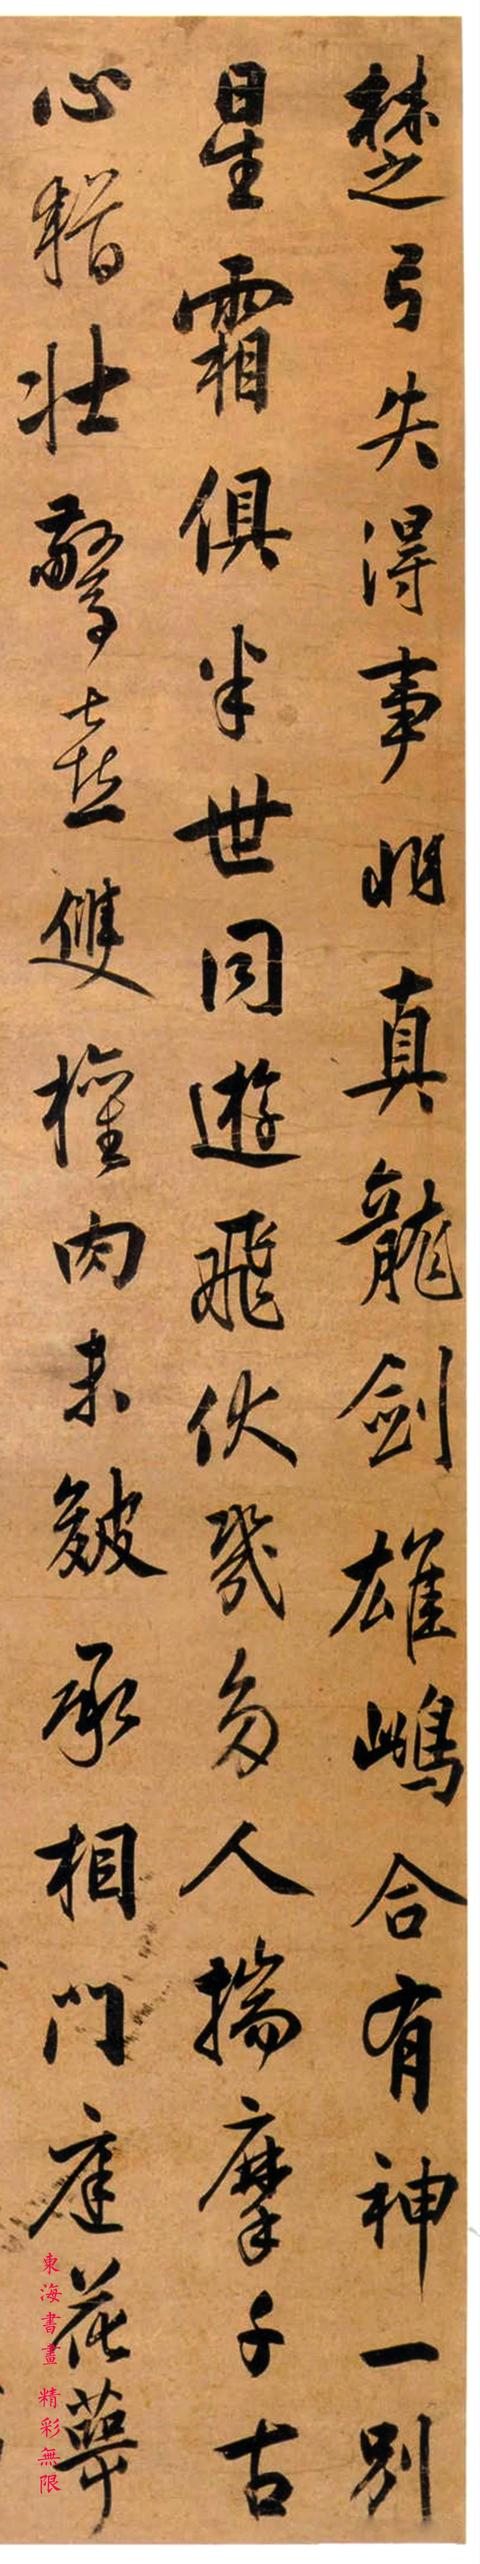 楚弓失得事非真龍劍雄鳴合有神一別
星霜俱半世同遊飛伏幾多人揣摩千古
心猶壯驚喜雙權肉未皴承相門庭花萼
東海書畫 精彩無限